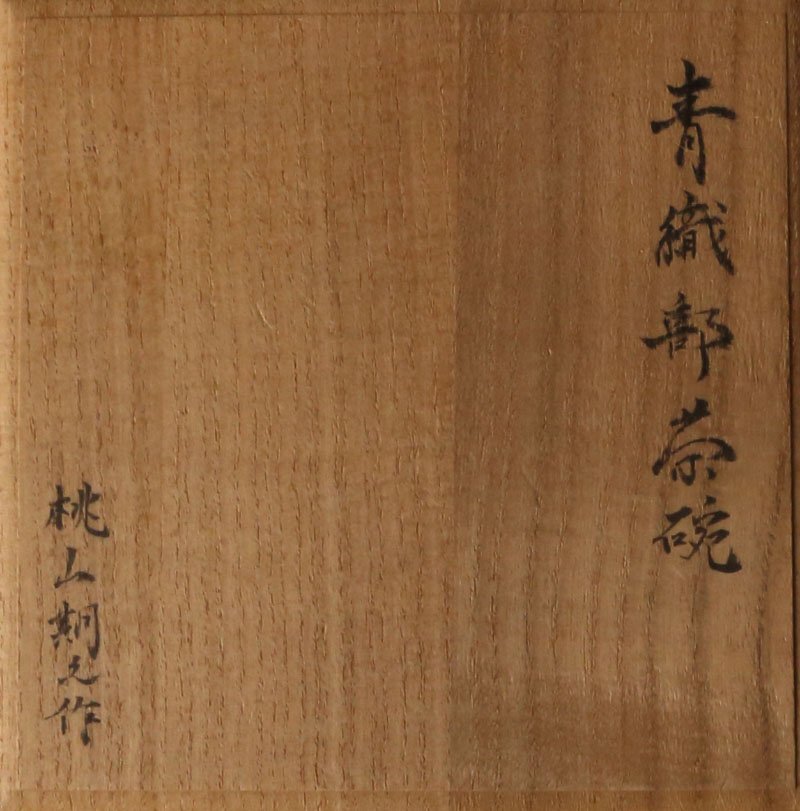 青織部茶碗
桃山期之作